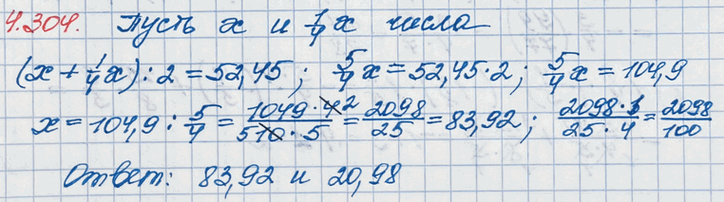 4.304. Пусть x и 1/4x числа
(x + 1/4x) : 2 = 52,45; 5/4x = 52,45·2; 5/4x = 104,9
x = 104,9 : 5/4 = 1049·4 2/5 10·5 = 2098/25 = 83,92; 2098·1/25·4 = 2098/100
Ответ: 83,92 и 20,98